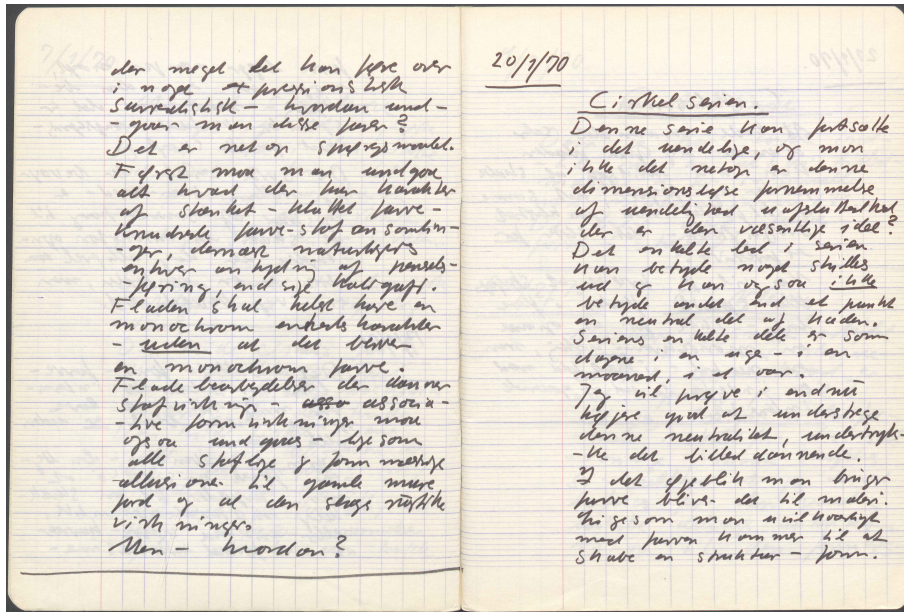 der meget let kan føre over
i noget expressionistisk
surrealistisk – hvordan und-
-gaar man disse farer?
Det er netop spørgsmaalet.
Først maa man undgaa
alt hvad der har karakter
af stænket – klattet farve –
knudrede farve-stof ansamlin-
-ger, dernæst naturligvis
enhver antydning af pensel-
-føring, end sige kaligrafi.
Fladen skal helst have en
monochrom enheds karakter
– uden at det bliver
en monochrom farve.
Flade bearbejdelser der danner
stofvirkning – associa-
-tive formvirkninger maa
ogsaa undgaaes – ligesom
alle stoflige og formmæssige
-allusioner til gamle mure
jord og al den slags rustikke
virkninger.
Men – hvordan?
20/7/70
Cirkelserien.
Denne serie kan fortsætte
i det uendelige, og mon
ikke det netop er denne
dimensionsløse fornemmelse
af uendelighed uafsluttethed
der er den væsentlige idé?
Det enkelte led i serien
kan betyde noget skilles
ud og kan ogsaa ikke
betyde andet end et punkt
en neutral del af kæden.
Seriens enkelte dele er som
dagene i en uge – i en
maaned, i et aar.
Jeg vil prøve i endnu
højere grad at understrege
denne neutralitet, undertryk-
-ke det billeddannende.
I det øjeblik man bruger
farve bliver det til maleri.
Ligesom man uvilkaarligt
med farven kommer til at
skabe en struktur – form.